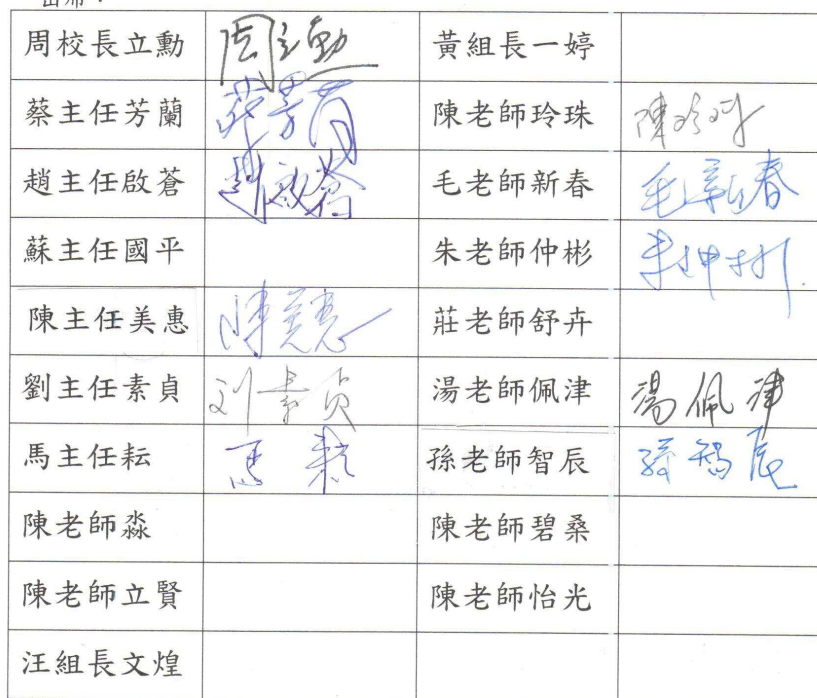 出席：
周校長立勳 周立勳 黃組長一婷
蔡主任芳蘭 蔡芳蘭 陳老師玲珠 陳玲珠
趙主任啟蒼 趙啟蒼 毛老師新春 毛新春
蘇主任國平 朱老師仲彬 朱仲彬
陳主任美惠 陳美惠 莊老師舒卉
劉主任素貞 刘素貞 湯老師佩津 湯佩津
馬主任耘 馬耘 孫老師智辰 孫智辰
陳老師淼 陳老師碧桑
陳老師立賢 陳老師怡光
汪組長文煌